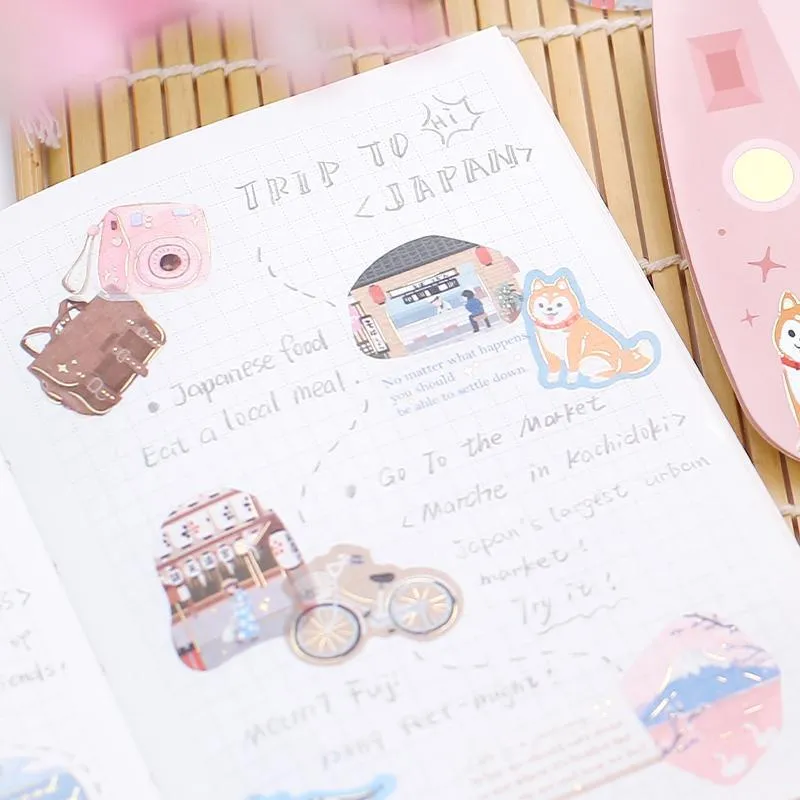 TRIP TO
Hi!
<JAPAN>
• Japanese food
Eat a local meal.
No matter what happens
you should
be able to settle down
• Go To the Market
<Marche in Kachidoki>
Japan's largest urban
market!
Try it!
Mount Fuji